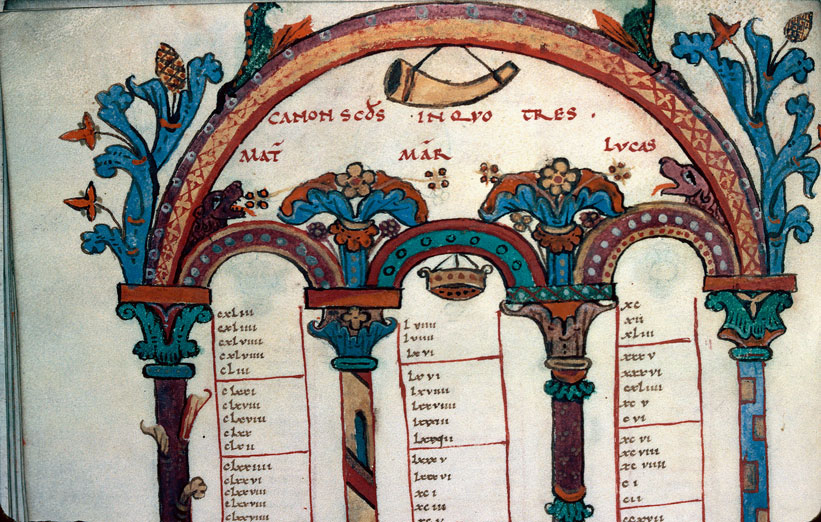 CANON SCD̄S · IN QVO TRES ·
MAT̄ MĀR LVCAS
cxliii
cxliiii
cxlviii
cxlviiii
cliii
clxxi
clxviii
clxviiii
clxx
clxii
clxxiiii
clxxvi
clxxviii
clxxviii
clxxviiii
lviiii
lxvi
lxvi
lxviiii
lxxviiii
lxxxv
lxxxvi
xci
xciii
xcv
xc
xii
xliii
xxxv
xxxvi
cxliiii
xcv
cvi
xcvi
xcviii
xcviiii
ci
cii
ccxvii